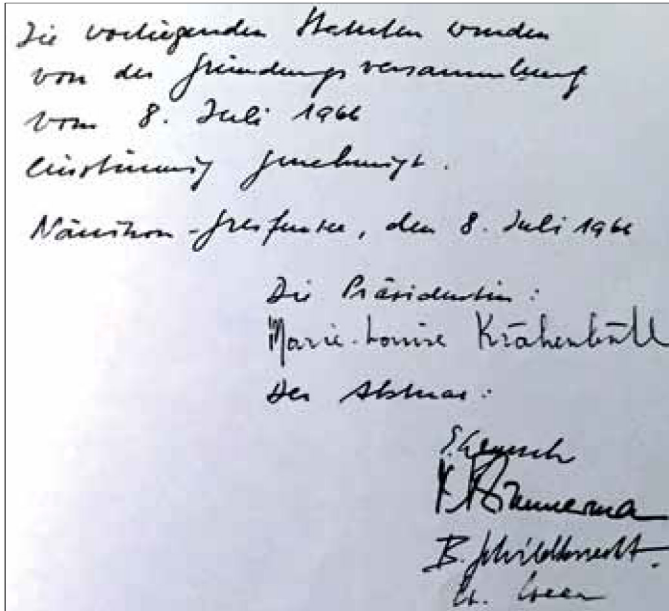 Die vorliegenden Statuten wurden
von der Gründungsversammlung
vom 8. Juli 1966
einstimmig genehmigt.
Nänikon-Greifensee, den 8. Juli 1966
Die Präsidentin:
Marie-Louise Krähenbühl
Der Aktuar:
B. Schildknecht.